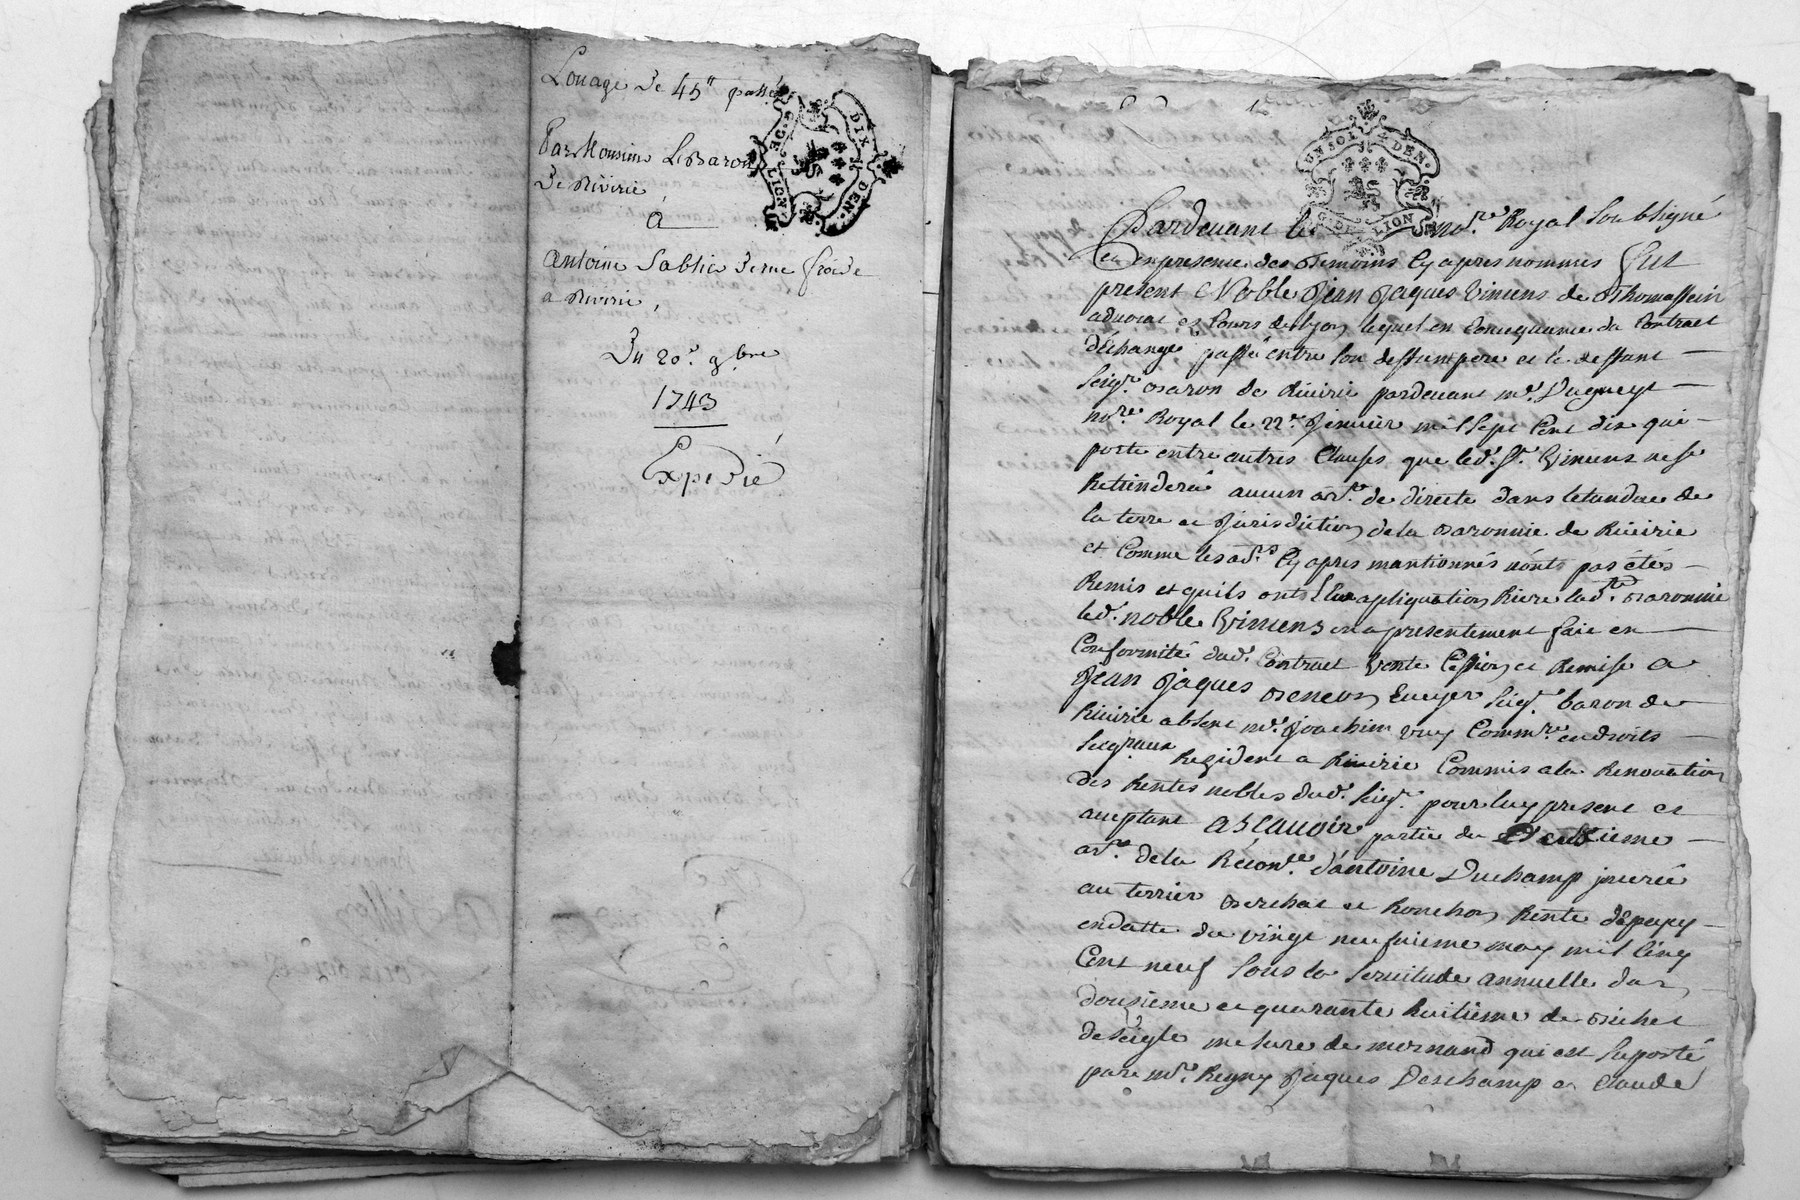 Louage de 45ᵗᵗ passé
Par Monsieur Le Baron
De Riverie
à
Antoine Sablier
a Riverie,
Du 20ᵉ 9bre
1743
Expedié
G. D. LION DIX DEN.
UN SOL 4 DEN.
G. DE LION
Pardevant le no.re Royal Soubsigné
en presence des temoins cy apres nommés fut
present Noble Jean Jaques Vimens de Thomassein
advocat és Cours de Lyon, lequel en Consequance du Contract
d'Echange passé entre son deffunt pere et le deffunt
Seig.r Baron de Riverie pardevant m.e Dugueyt
no.re Royal le 22.e Janvier mil sept Cent dix qui
porte entre autres Clauses que led. s.r Vimens ne se
Retiendera aucun ar.le de directe dans letandue de
la terre et Jurisdiction de la Baronnie de Riverie
et Comme les ar.s Cy apres mantionnés n'onts pas étés
Remis et quils onts Leur apliquation Riere lad.te Baronnie
led. noble Vimens en a presentement fait en
Conformité dud. Contract Vente Cession et Remise a
Jean Jaques Beneon, Ecuyer Seig.r baron de
Riverie absent m.e Joachim Commre. en droits
Seig.raux Rezident a Riverie Commis a la Renovation
des Rentes nobles dud. Seig.r pour luy present et
aceptant ASCAVOIR partie du ieme
ar.le de la Récon.ce d'antoine Duchamp jurée
au terrier Berchat et Ronchon, Rente d'Epeyzy
en datte du vingt neufvieme may mil Cinq
Cent neuf Sous la Servitude annuelle d'un
douzieme et quarante huitieme de Bichet
de Seigle mesure de mornand qui est Suporté
par m.e Reyny Jaques Deschamp et Claude